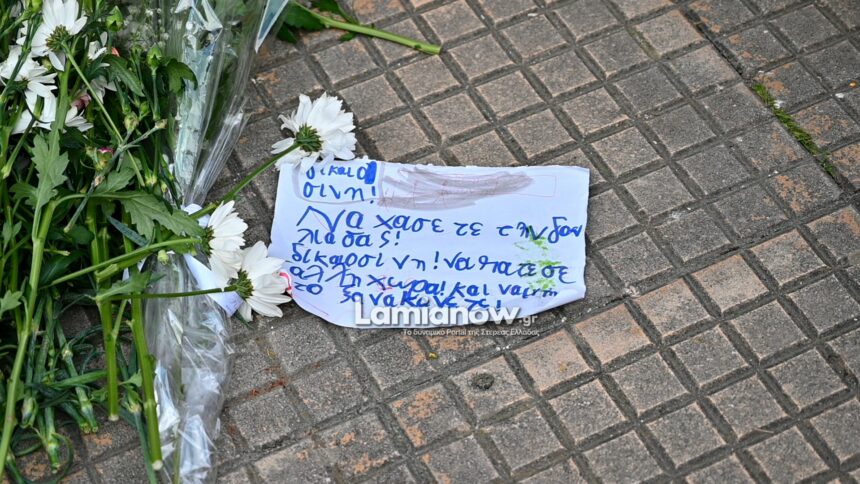 δικαιο
σινη!
Να χασε τε τη νδου
λια σας!
δικαιοσι νη! να πατε σε
αλλη χωρα! και να μην
το ξανα κανε τε!
Lamianow.gr
Το δυναμικό Portal της Στερεάς Ελλάδας